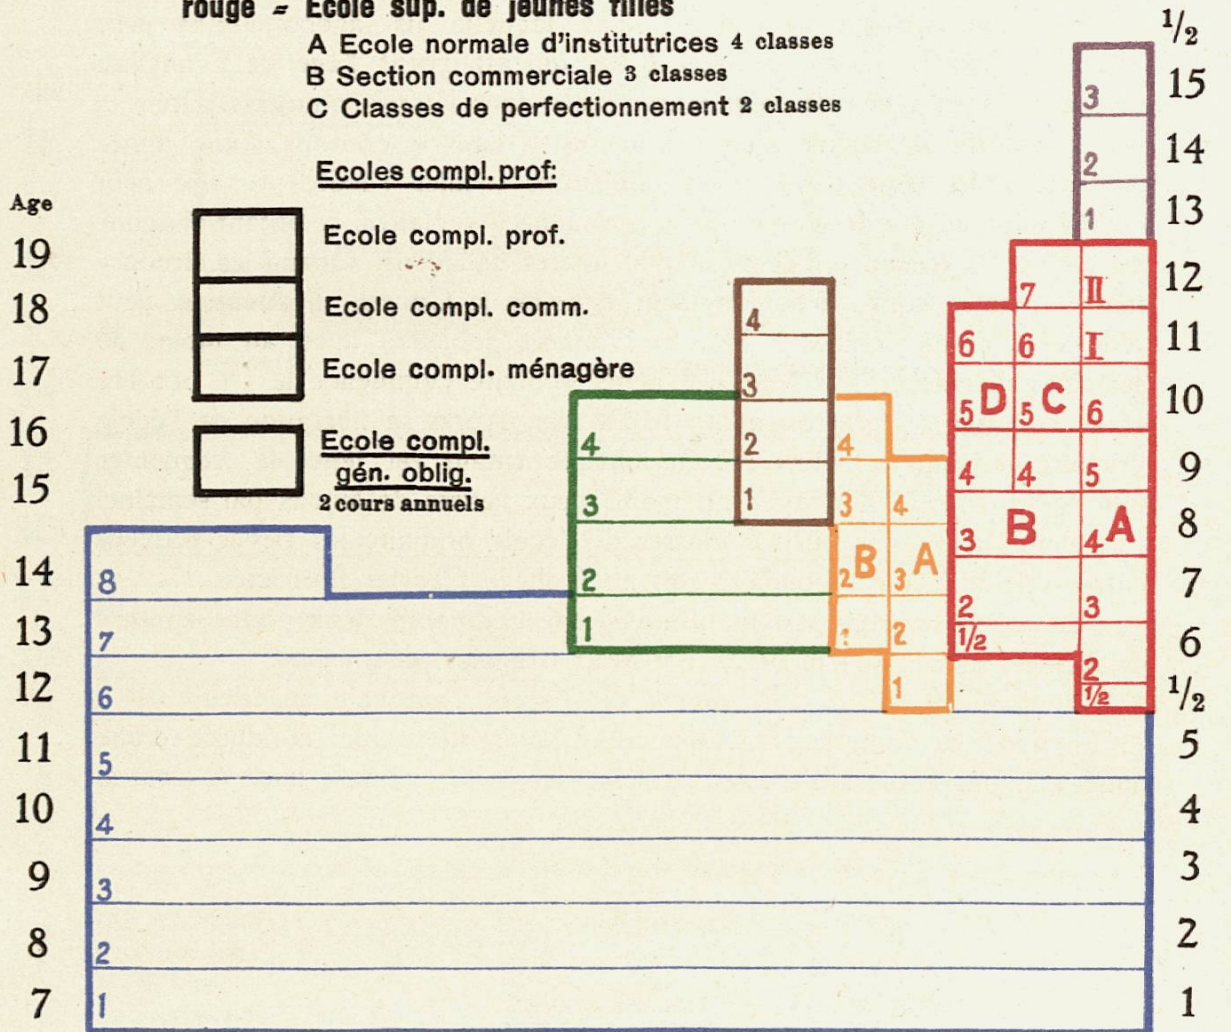 rouge = Ecole sup. de jeunes filles
A Ecole normale d'institutrices 4 classes
B Section commerciale 3 classes
C Classes de perfectionnement 2 classes
Ecoles compl. prof:
Ecole compl. prof.
Ecole compl. comm.
Ecole compl. ménagère
Ecole compl.
gén. oblig.
2 cours annuels
Age
19
18
17
16
15
14
13
12
11
10
9
8
7
8
7
6
5
4
3
2
1
4
3
2
1
4
3
2
1
4
3
2
1
B
4
3
2
1
A
6
5 D
4
3
2
1/2
7
6
5 C
4
B
II
I
6
5
4 A
3
2
1/2
3
2
1
1/2
15
14
13
12
11
10
9
8
7
6
1/2
5
4
3
2
1